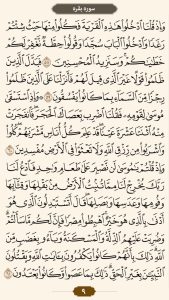 سوره بقره
وَإِذْ قُلْنَا ادْخُلُوا هَٰذِهِ الْقَرْيَةَ فَكُلُوا مِنْهَا حَيْثُ شِئْتُمْ
رَغَدًا وَادْخُلُوا الْبَابَ سُجَّدًا وَقُولُوا حِطَّةٌ نَغْفِرْ لَكُمْ
خَطَايَاكُمْ وَسَنَزِيدُ الْمُحْسِنِينَ ۝ فَبَدَّلَ الَّذِينَ
ظَلَمُوا قَوْلًا غَيْرَ الَّذِي قِيلَ لَهُمْ فَأَنْزَلْنَا عَلَى الَّذِينَ ظَلَمُوا
رِجْزًا مِنَ السَّمَاءِ بِمَا كَانُوا يَفْسُقُونَ ۝ وَإِذِ اسْتَسْقَى
مُوسَى لِقَوْمِهِ فَقُلْنَا اضْرِبْ بِعَصَاكَ الْحَجَرَ فَانْفَجَرَتْ
مِنْهُ اثْنَتَا عَشْرَةَ عَيْنًا قَدْ عَلِمَ كُلُّ أُنَاسٍ مَشْرَبَهُمْ كُلُوا
وَاشْرَبُوا مِنْ رِزْقِ اللَّهِ وَلَا تَعْثَوْا فِي الْأَرْضِ مُفْسِدِينَ ۝
وَإِذْ قُلْتُمْ يَا مُوسَى لَنْ نَصْبِرَ عَلَى طَعَامٍ وَاحِدٍ فَادْعُ لَنَا
رَبَّكَ يُخْرِجْ لَنَا مِمَّا تُنْبِتُ الْأَرْضُ مِنْ بَقْلِهَا وَقِثَّائِهَا
وَفُومِهَا وَعَدَسِهَا وَبَصَلِهَا قَالَ أَتَسْتَبْدِلُونَ الَّذِي هُوَ
أَدْنَى بِالَّذِي هُوَ خَيْرٌ اهْبِطُوا مِصْرًا فَإِنَّ لَكُمْ مَا سَأَلْتُمْ
وَضُرِبَتْ عَلَيْهِمُ الذِّلَّةُ وَالْمَسْكَنَةُ وَبَاءُوا بِغَضَبٍ مِنَ
اللَّهِ ذَٰلِكَ بِأَنَّهُمْ كَانُوا يَكْفُرُونَ بِآيَاتِ اللَّهِ وَيَقْتُلُونَ
النَّبِيِّينَ بِغَيْرِ الْحَقِّ ذَٰلِكَ بِمَا عَصَوْا وَكَانُوا يَعْتَدُونَ ۝
۹